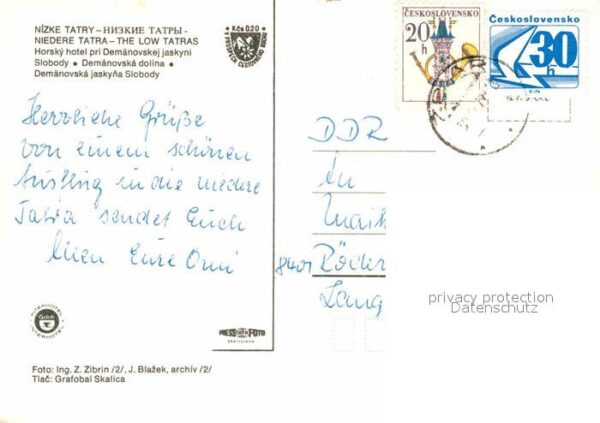 NÍZKE TATRY – НИЗКИЕ ТАТРЫ -
NIEDERE TATRA – THE LOW TATRAS
Horský hotel pri Demänovskej jaskyni
Slobody • Demänovská dolina •
Demänovská jaskyňa Slobody
Kčs 0,20
ČESKOSLOVENSKO
20 h
Československo
30 h
Herzliche Grüße
von einem schönen
Ausflug in die niedere
Tatra sendet Euch
allen Eure Omi
DDR
An
Maik
8401 Röder
Lang
privacy protection
Datenschutz
INTERHOTEL
PRESSFOTO
BRATISLAVA
Foto: Ing. Z. Zibrin /2/, J. Blažek, archív /2/
Tlač: Grafobal Skalica